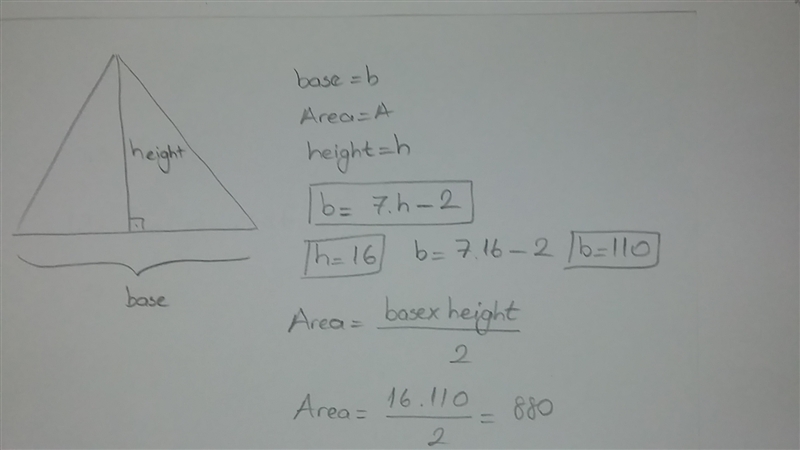 height
base
base = b
Area = A
height = h
b = 7.h - 2
h = 16 b = 7.16 - 2 b = 110
Area = base x height / 2
Area = 16.110 / 2 = 880